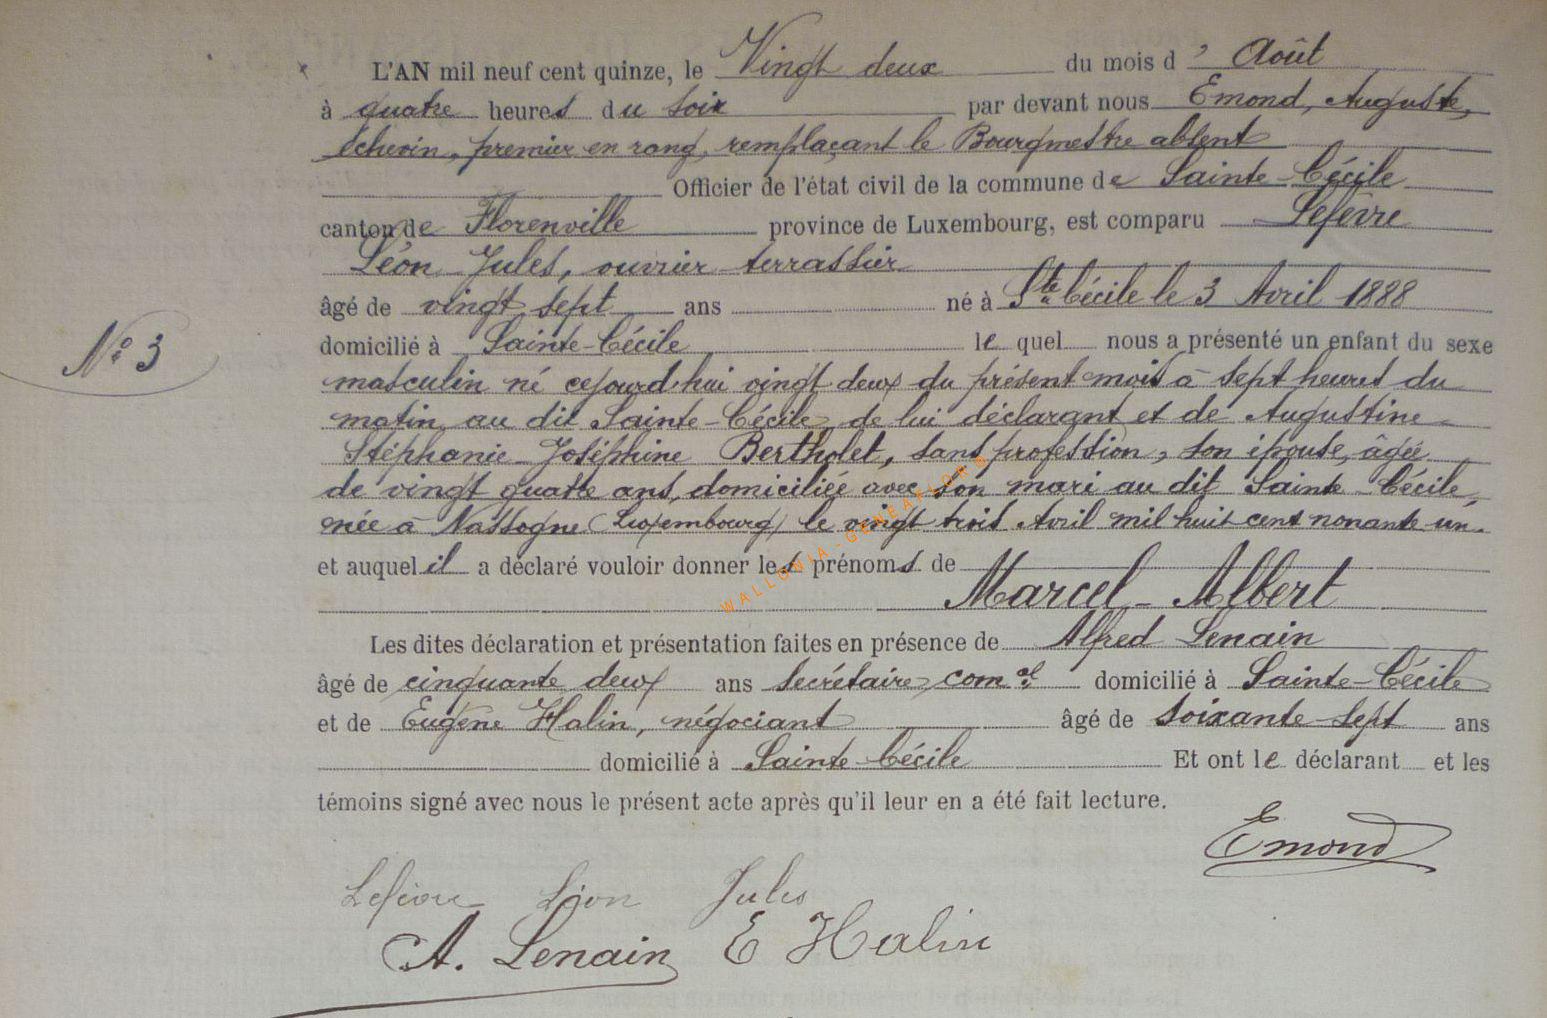 L'AN mil neuf cent quinze, le Vingt deux du mois d' Août
à quatre heures du soir par devant nous Emond, Auguste,
échevin, premier en rang, remplaçant le Bourgmestre absent
Officier de l'état civil de la commune de Sainte-Cécile
canton de Florenville province de Luxembourg, est comparu Lefèvre
Léon Jules, ouvrier terrassier
âgé de vingt sept ans né à Ste Cécile le 3 Avril 1888
N° 3
domicilié à Sainte-Cécile le quel nous a présenté un enfant du sexe
masculin né cejourd'hui vingt deux du présent mois à sept heures du
matin au dit Sainte-Cécile, de lui déclarant et de Augustine
Stéphanie Joséphine Bertholet, sans profession, son épouse, âgée
de vingt quatre ans, domiciliée avec son mari au dit Sainte-Cécile,
née à Nassogne (Luxembourg) le vingt trois Avril mil huit cent nonante-un.
et auquel il a déclaré vouloir donner les prénoms de
Marcel-Albert
Les dites déclaration et présentation faites en présence de Alfred Lenain
âgé de cinquante deux ans secrétaire comal domicilié à Sainte-Cécile
et de Eugène Halin, négociant âgé de soixante-sept ans
domicilié à Sainte Cécile Et ont le déclarant et les
témoins signé avec nous le présent acte après qu'il leur en a été fait lecture.
Emond
Lefèvre Léon Jules
A. Lenain E Halin
WALLONIA-GENEAFLORE